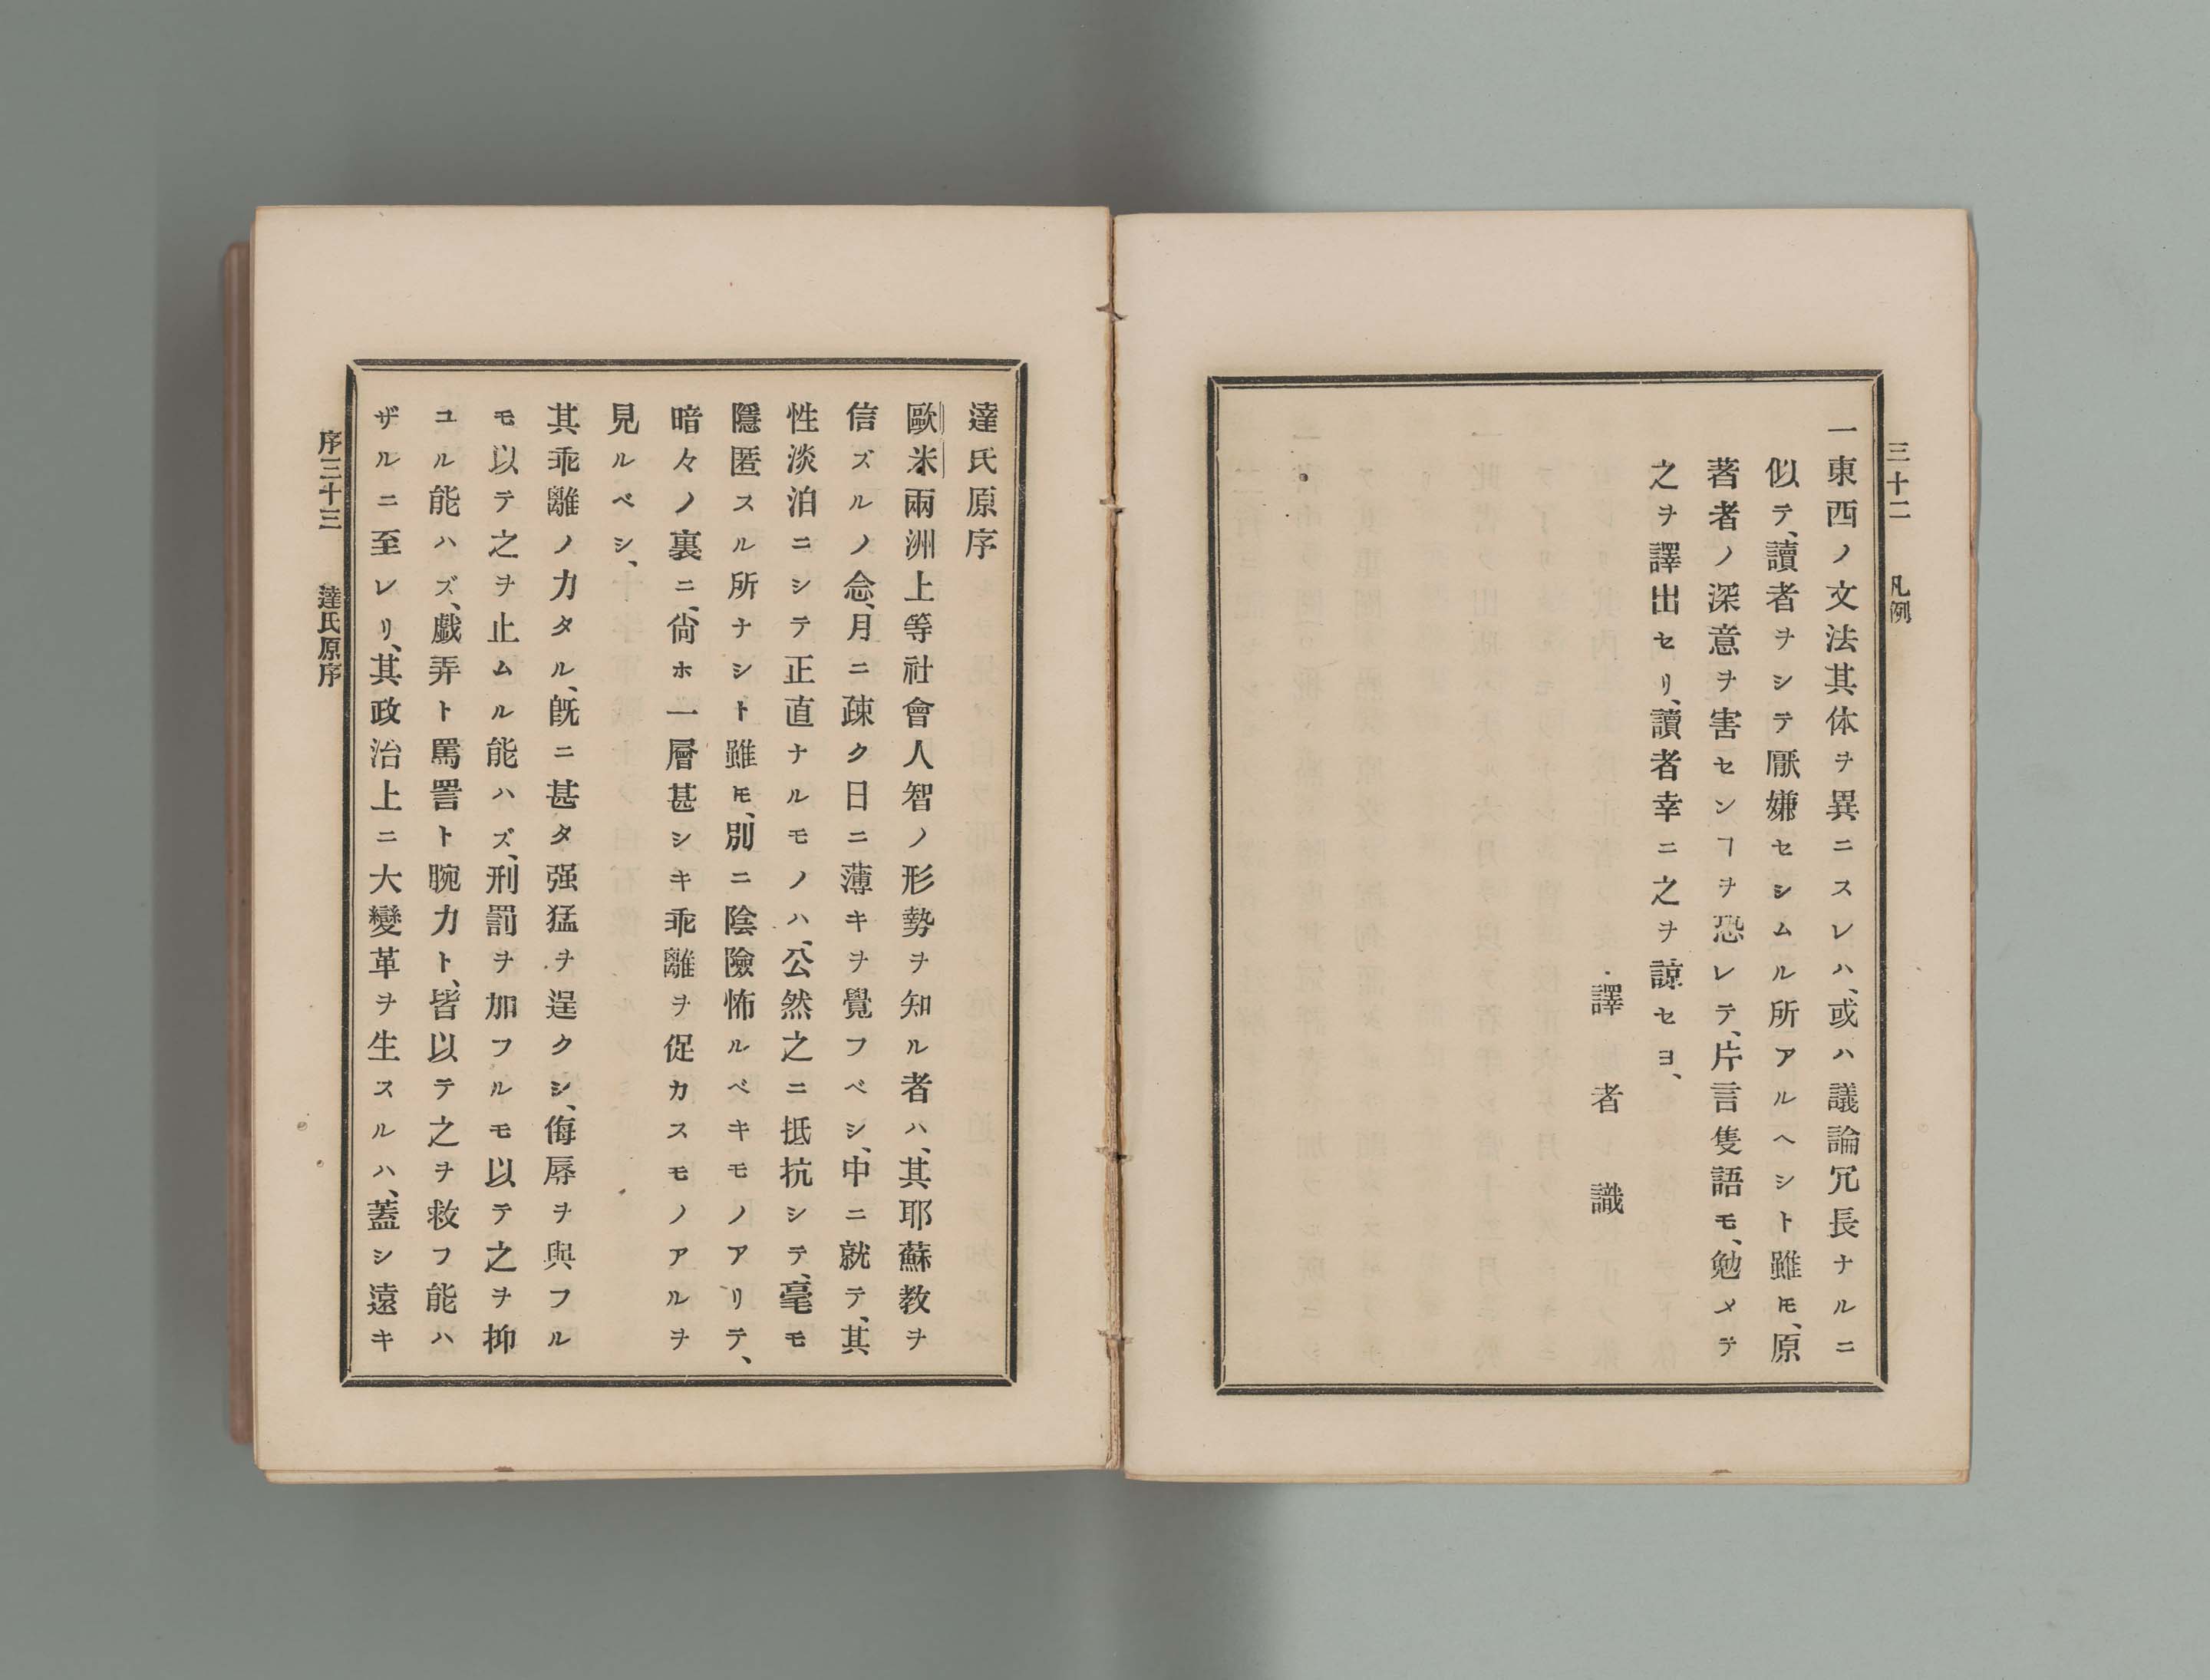 三十二　凡例
一東西ノ文法其体ヲ異ニスレハ、或ハ議論冗長ナルニ
似テ、讀者ヲシテ厭嫌セシムル所アルヘシト雖𪜈、原
著者ノ深意ヲ害センヿヲ恐レテ、片言隻語モ、勉メテ
之ヲ譯出セリ、讀者幸ニ之ヲ諒セヨ、
譯者識
達氏原序
歐米兩洲上等社會人智ノ形勢ヲ知ル者ハ、其耶蘇教ヲ
信ズルノ念、月ニ疎ク日ニ薄キヲ覺フベシ、中ニ就テ、其
性淡泊ニシテ正直ナルモノハ、公然之ニ抵抗シテ、毫モ
隱匿スル所ナシト雖𪜈、別ニ陰險怖ルベキモノアリテ、
暗々ノ裏ニ、尙ホ一層甚シキ乖離ヲ促カスモノアルヲ
見ルベシ、
其乖離ノ力タル、旣ニ甚タ强猛ヲ逞クシ、侮辱ヲ與フル
モ以テ之ヲ止ムル能ハズ、刑罰ヲ加フルモ以テ之ヲ抑
ユル能ハズ、戯弄ト罵詈ト腕力ト、皆以テ之ヲ救フ能ハ
ザルニ至レリ、其政治上ニ大變革ヲ生スルハ、蓋シ遠キ
序三十三　達氏原序